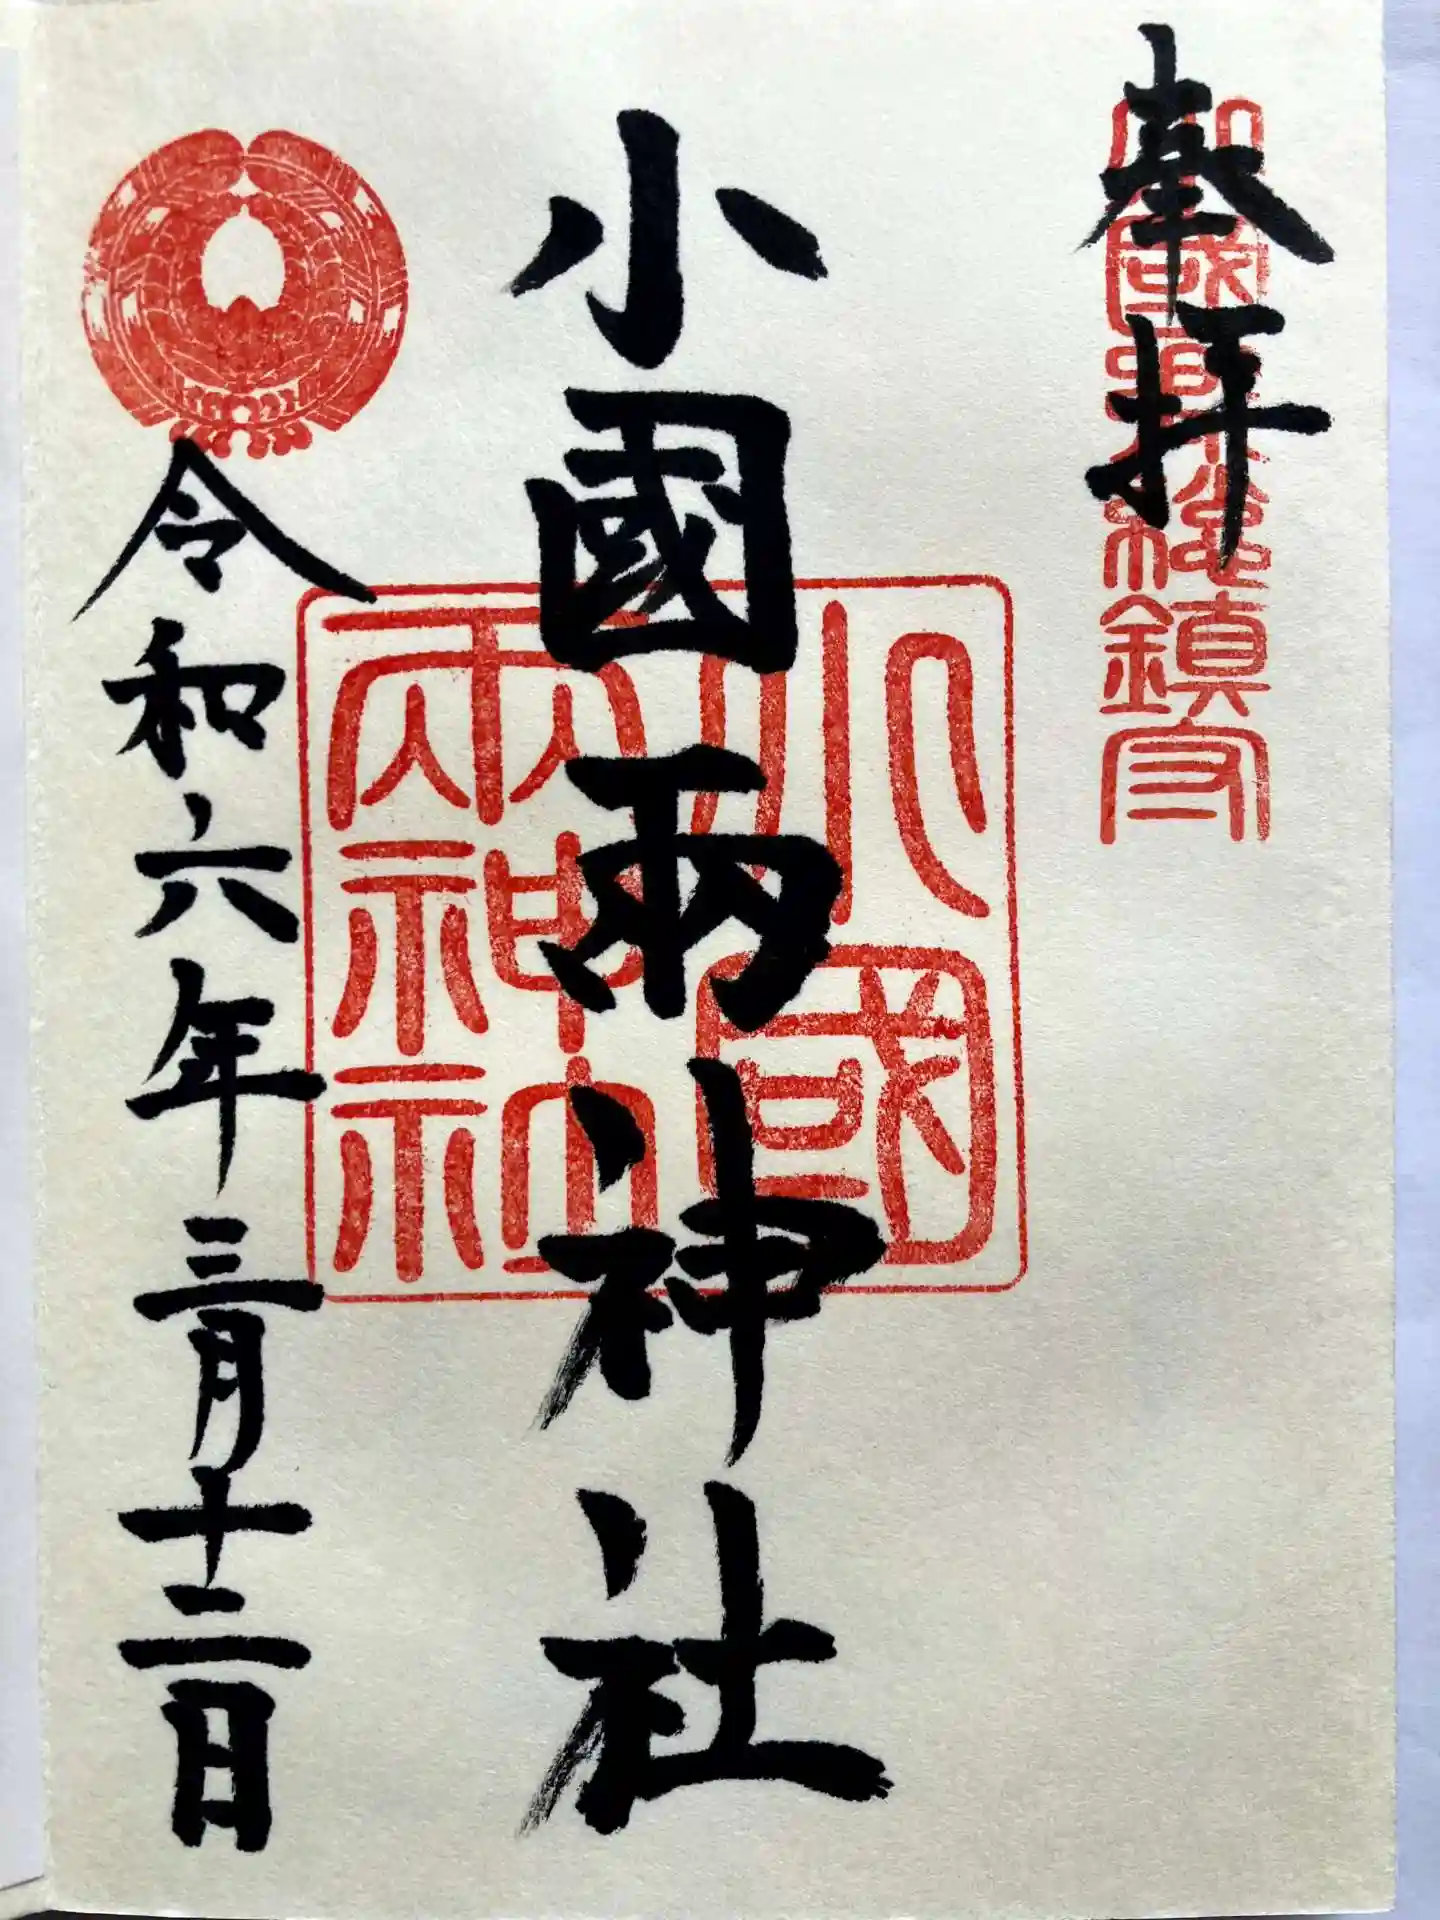 奉拝
小國郷総鎮守
小國両神社
小國
両神社
令和六年三月十二日